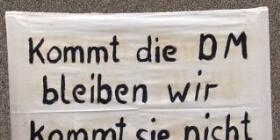 Kommt die DM
bleiben wir
kommt sie nicht